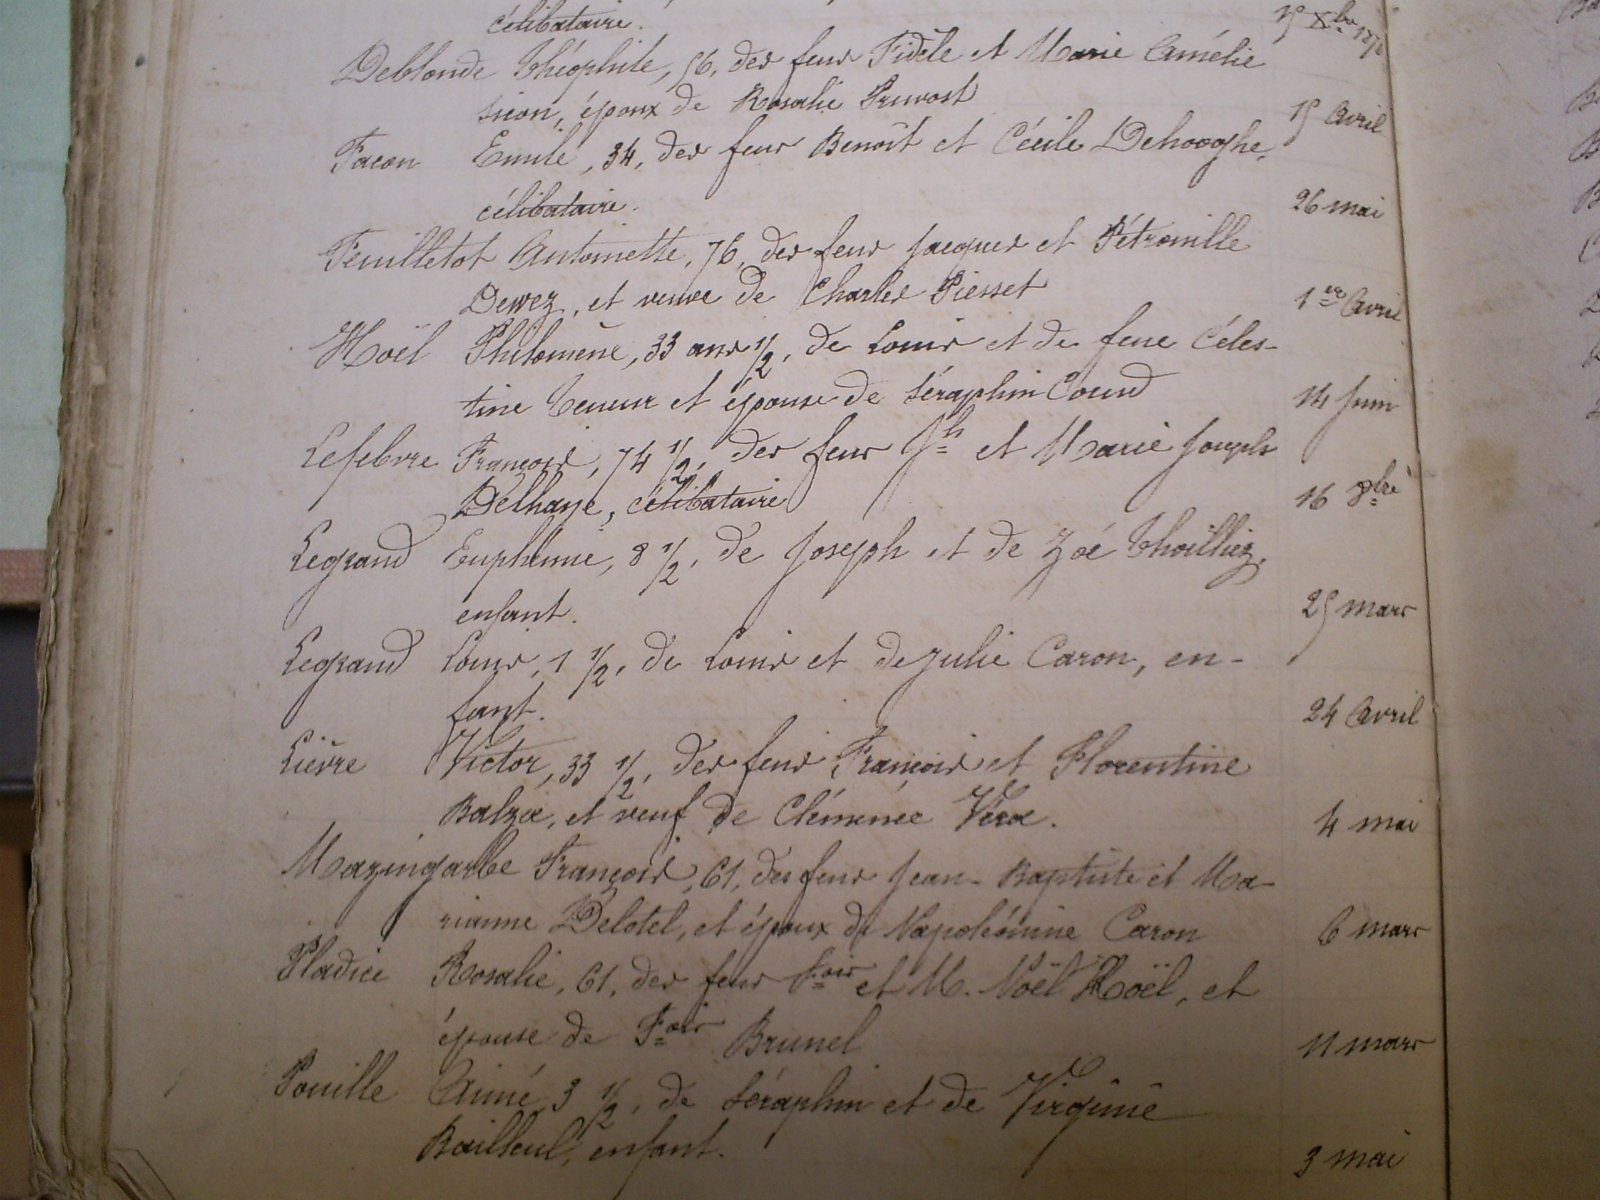 célibataire. 15 Xbre 1871
Deblonde Théophile, 56, des feus Fidèle et Marie Amélie
sion, époux de Rosalie Pruvost 15 Avril
Facon Emile, 34, des feus Benoît et Cécile Dehooghe,
célibataire. 26 mai
Feuilletot Antoinette, 76, des feus Jacques et Pétronille
Dewez, et veuve de Charles Piesset 1er Avril
Hoël Philomène, 33 ans 1/2, de Louis et de feue Céles-
tine Teneur et épouse de Séraphin Cound 14 Juin
Lefebvre François, 74 1/2, des feus Jh et Marie Joseph
Delhaye, célibataire 16 8bre
Legrand Euphémie, 8 1/2, de Joseph et de Zoé Thoilliez,
enfant. 25 mars
Legrand Louis, 1 1/2, de Louis et de Julie Caron, en-
fant. 24 Avril
Lièvre Victor, 33 1/2, des feus François et Florentine
et veuf de Clémence 4 mai
Mazingarbe François, 61, des feus Jean-Baptiste et Ma-
rianne Delotel, et époux de Napoléonine Caron 6 mars
Pladice Rosalie, 61, des feus Fois et M. Noël Hoël, et
épouse de Fois Brunel 11 mars
Pouille Aimé 3 1/2, de Séraphin et de Virginie
Bailleul, enfant. 3 mai